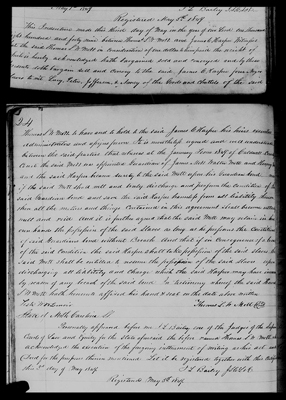 May 3rd 1849
Registered May 8th 1849
This Indenture made this third day of May in the year of our Lord One Thousand
eight hundred and forty nine between Thomas S. W. Mott and James C. Harper Witnesseth
that the said Thomas S. W. Mott in consideration of one dollar to him paid the receipt of
which is hereby acknowledged hath bargained sold and conveyed and by these
presents doth bargain sell and convey to the said James C. Harper four negro
Slaves to wit, Lucy, Peter, Jefferson & Dorsey of the Goods and chattels of the said
24
Thomas S. W. Mott to have and to hold to the said James C. Harper his heirs executors
administrators and assigns forever. It is nevertheless agreed and well understood
between the said parties that whereas at the January Term 1849 of Caldwell County
Court the said Mott was appointed Guardian of James
and the said Harper became surety to the said Mott upon his Guardian bond
if the said Mott shall well and truly discharge and perform the conditions of the
said Guardian bond and save the said Harper harmless from all liability
then all the matters and things contained in this agreement shall become
null and void. And it is further agreed that the said Mott may retain in his
own hands the possession of the said slaves as long as he performs the conditions
of said Guardian bond without breach. And that if in consequence of a breach
of the said condition the said Harper should take possession of the said slaves the
said Mott shall be entitled to resume the possession of the said slaves upon
discharging all liability and charge which the said Harper may have incurred
by reason of any breach of the said bond. In testimony whereof the said Thomas
S. W. Mott hath hereunto affixed his hand & seal on the date above written
Thomas S. W. Mott (Seal)
State of North Carolina
Personally appeared before me J. L. Bailey one of the Judges of the Superior
Courts of Law and Equity for the State aforesaid the before named Thomas S. W. Mott who
acknowledged the execution of the foregoing instrument of writing as his act and
deed for the purposes therein mentioned. Let it be registered together with this Certificate
this 3rd day of May 1849.
J. L. Bailey
Registered May 8th 1849